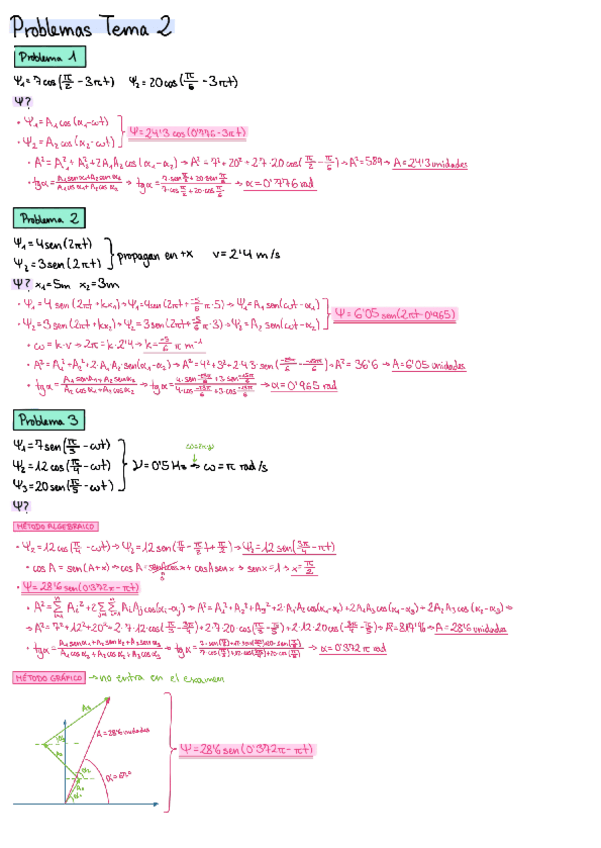 Problemas Tema 2
Problema 1
Ψ₁=7cos(π/2 - 3πt) Ψ₂=20cos(π/6 - 3πt)
Ψ?
• Ψ₁=A₁cos(α₁-ωt)
• Ψ₂=A₂cos(α₂-ωt)
Ψ=24'3 cos(0'776-3πt)
• A²=A₁²+A₂²+2A₁A₂cos(α₁-α₂) → A²=7²+20²+2·7·20cos(π/2-π/6) → A²=589 → A=24'3 unidades
• tgα= (A₁senα₁+A₂senα₂)/(A₁cosα₁+A₂cosα₂) → tgα= (7·sen π/2+20·sen π/6)/(7·cos π/2+20·cos π/6) → α=0'776 rad
Problema 2
Ψ₁=4sen(2πt)
Ψ₂=3sen(2πt)
propagan en +x v=2'4 m/s
Ψ? x₁=5m x₂=3m
• Ψ₁=4 sen(2πt+kx₁) → Ψ₁=4sen(2πt+ -5/6 π·5) → Ψ₁=A₁sen(ωt-α₁)
• Ψ₂=3 sen(2πt+kx₂) → Ψ₂=3sen(2πt+ -5/6 π·3) → Ψ₂=A₂ sen(ωt-α₂)
Ψ=6'05 sen(2πt-0'965)
• ω=k·v → 2π=k·2'4 → k= -5/6 π m⁻¹
• A²=A₁²+A₂²+2·A₁A₂ → A²=4²+3²+2·4·3 → A²=36'6 → A=6'05 unidades
• tgα → tgα → α=0'965 rad
Problema 3
Ψ₁=7sen(π/3 - ωt)
Ψ₂=12cos(π/4 - ωt)
Ψ₃=20sen(π/5 - ωt)
ω=2π·ν
ν=0'5 Hz → ω=π rad/s
Ψ?
MÉTODO ALGEBRAICO
• Ψ₂=12cos(π/4 - ωt) → Ψ₂=12sen(π/4 - πt + π/2) → Ψ₂=12sen(3π/4 - πt)
• cosA=sen(A+x) → cosA=senAcosx + cosAsenx → senx=1 → x=π/2
• Ψ=28'6 sen(0'372π-πt)
• A²=A₁²+A₂²+A₃²+2·A₁A₂cos(α₁-α₂)+2A₁A₃cos(α₁-α₃)+2A₂A₃cos(α₂-α₃) →
→ A²=7²+12²+20²+2·7·12·cos(π/3-3π/4)+2·7·20·cos(π/3-π/5)+2·12·20cos(3π/4-π/5) → A=28'6 unidades
• tgα= (A₁senα₁+A₂senα₂+A₃senα₃)/(A₁cosα₁+A₂cosα₂+A₃cosα₃) → tgα → α=0'372π rad
MÉTODO GRÁFICO → no entra en el examen
A₃
A=28'6 unidades
α₃
A₂
α₂
A₁
α₁
Ψ=28'6 sen(0'372π-πt)